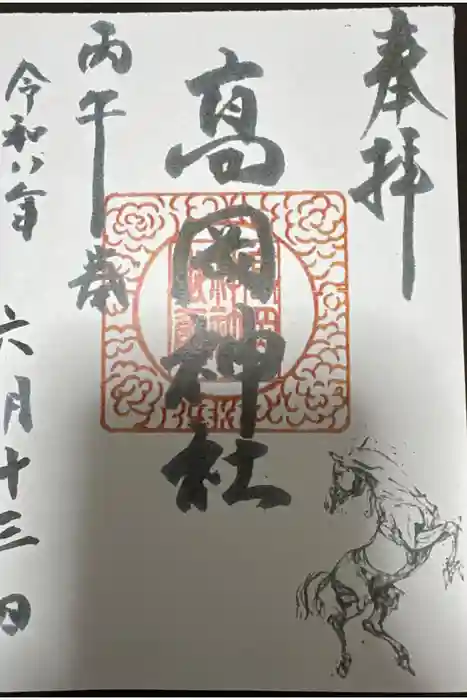 奉拝
高岡神社
丙午歳
令和八年
六月十三日